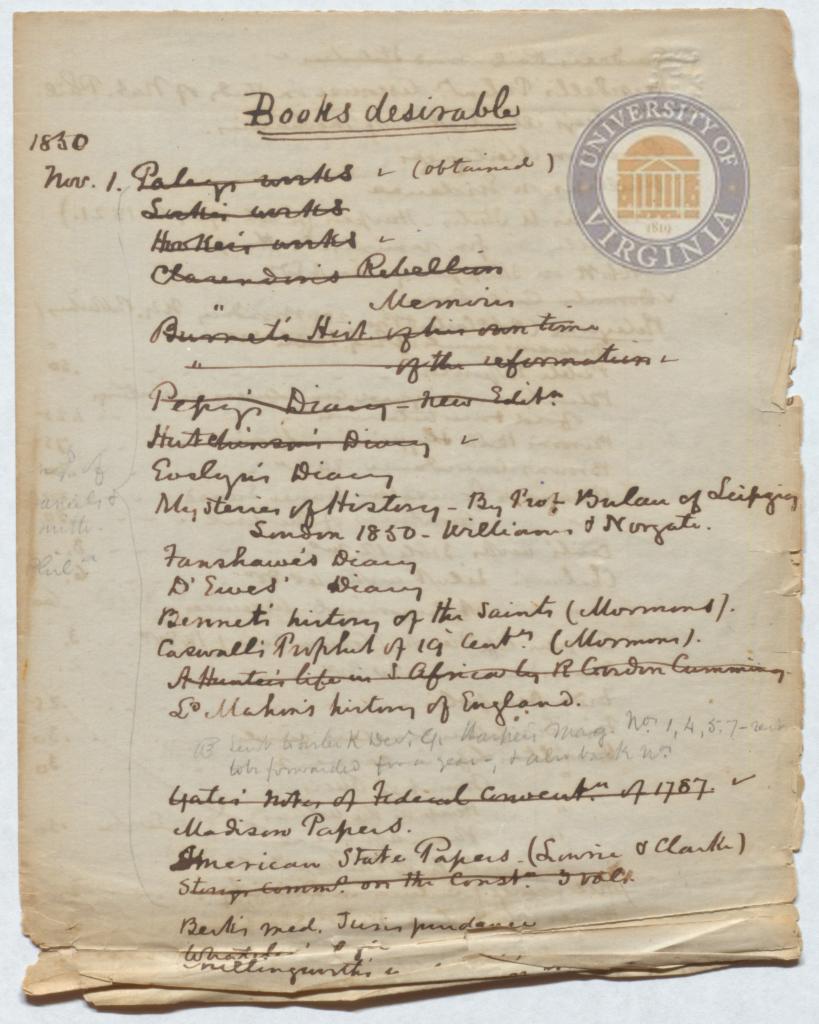 Books desirable
UNIVERSITY OF VIRGINIA
1819
1850
Nov. 1. Paley's works (obtained)
Locke's works
Hooker's works
Clarendon's Rebellion
" Memoirs
Burnet's Hist. of his own time
" of the reformation
Pepy's Diary - new Editn
Hutchinson's Diary
Evelyn's Diary
Mysteries of History - By Prof. Bulau of Leipzig
London 1850 - Williams & Norgate.
Fanshawe's Diary
D'Ewes' Diary
Bennet's history of the Saints (Mormons).
Caswall's Prophet of 19 Centy (Mormons).
A Hunter's life in S Africa by R Gordon Cumming
Ld Mahon's history of England.
Harper's Mag. Nos 1, 4, 5, 7
to be forwarded for a year, & also back Nos
Yates' Notes of Federal Conventn of 1787.
Madison Papers.
American State Papers - (Lowrie & Clarke)
Story's Comms. on the Constn 3 vols.
Beck's med. Jurisprudence
Chillingworth's